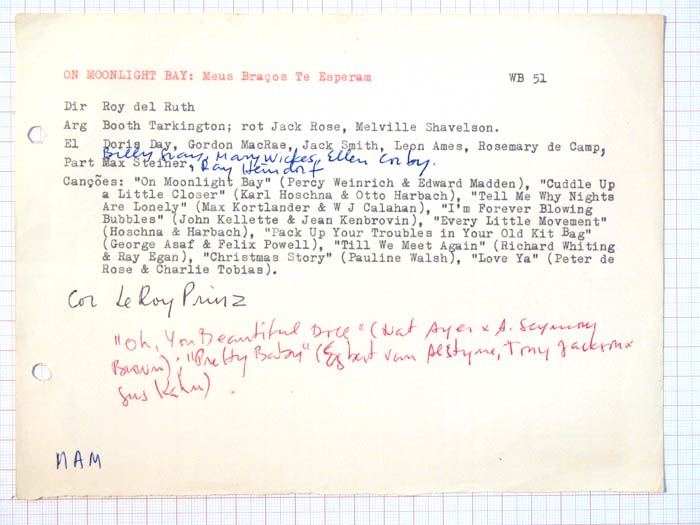 ON MOONLIGHT BAY: Meus Braços Te Esperam WB 51
Dir Roy del Ruth
Arg Booth Tarkington; rot Jack Rose, Melville Shavelson.
El Doris Day, Gordon MacRae, Jack Smith, Leon Ames, Rosemary de Camp,
Billy Gray, Mary Wickes, Ellen Corby.
Part Max Steiner, Ray Heindorf
Canções: "On Moonlight Bay" (Percy Weinrich & Edward Madden), "Cuddle Up
a Little Closer" (Karl Hoschna & Otto Harbach), "Tell Me Why Nights
Are Lonely" (Max Kortlander & W J Calahan), "I'm Forever Blowing
Bubbles" (John Kellette & Jean Kenbrovin), "Every Little Movement"
(Hoschna & Harbach), "Pack Up Your Troubles in Your Old Kit Bag"
(George Asaf & Felix Powell), "Till We Meet Again" (Richard Whiting
& Ray Egan), "Christmas Story" (Pauline Walsh), "Love Ya" (Peter de
Rose & Charlie Tobias).
Cor LeRoy Prinz
"Oh, You Beautiful Doll" (Nat Ayer x A. Seymour
Brown); "Pretty Baby" (Egbert van Alstyne, Tony Jackson x
Gus Kahn).
MAM